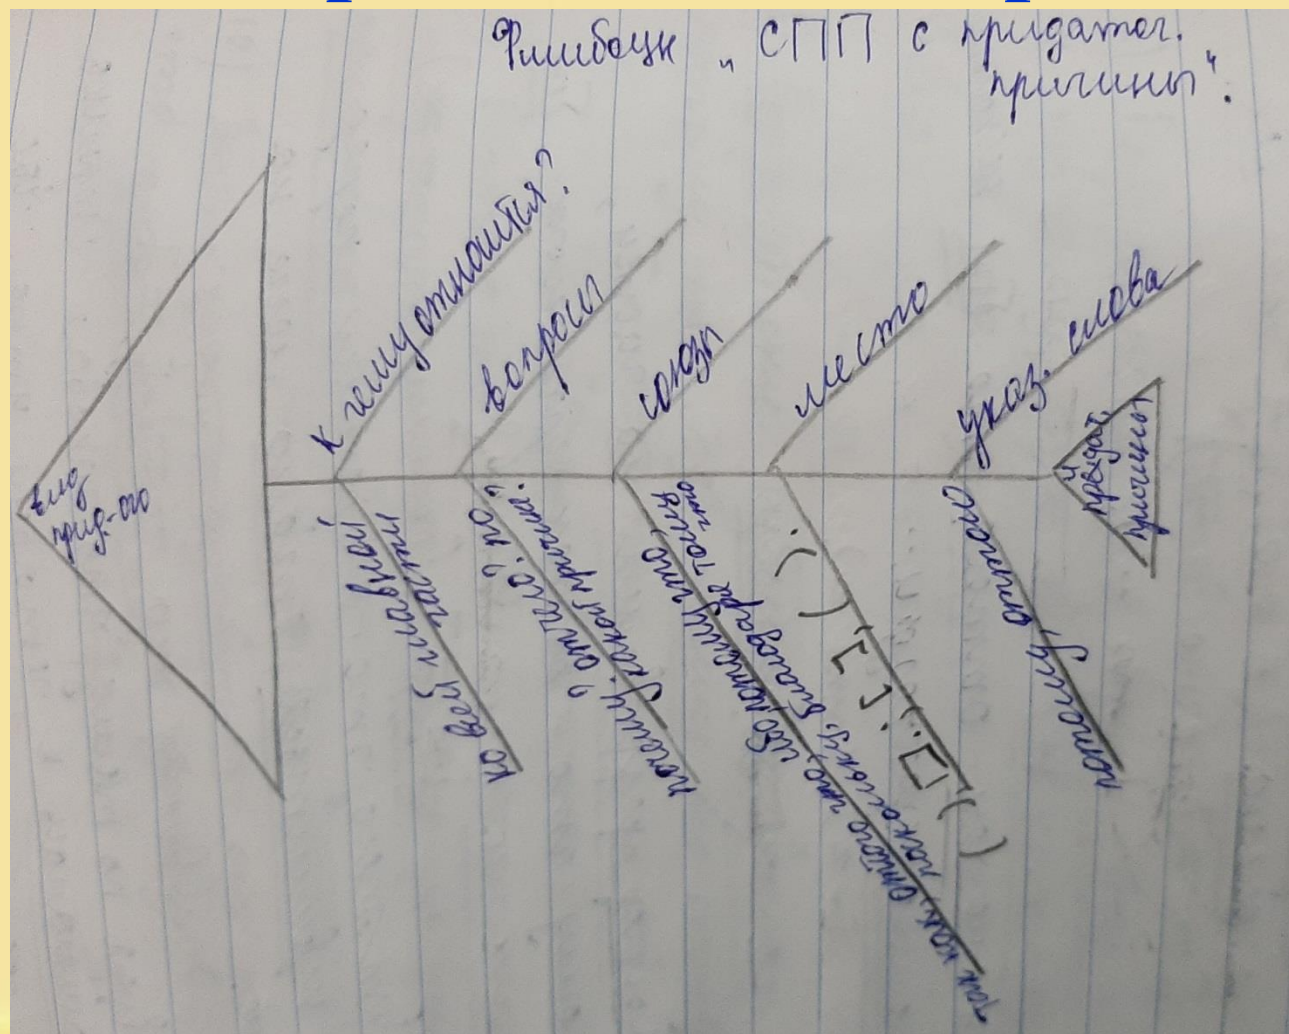 Фишбоун „СПП с придаточ.
причины".
вид
прид-ого
к чему относится?
вопросы
союзы
место
указ. слова
придат.
причины
ко всей главной
части
почему? отчего? по
какой причине?
так как, оттого что, ибо, потому что,
поскольку, благодаря тому
что
( ), [ ]. [ ], ( ).
потому, оттого